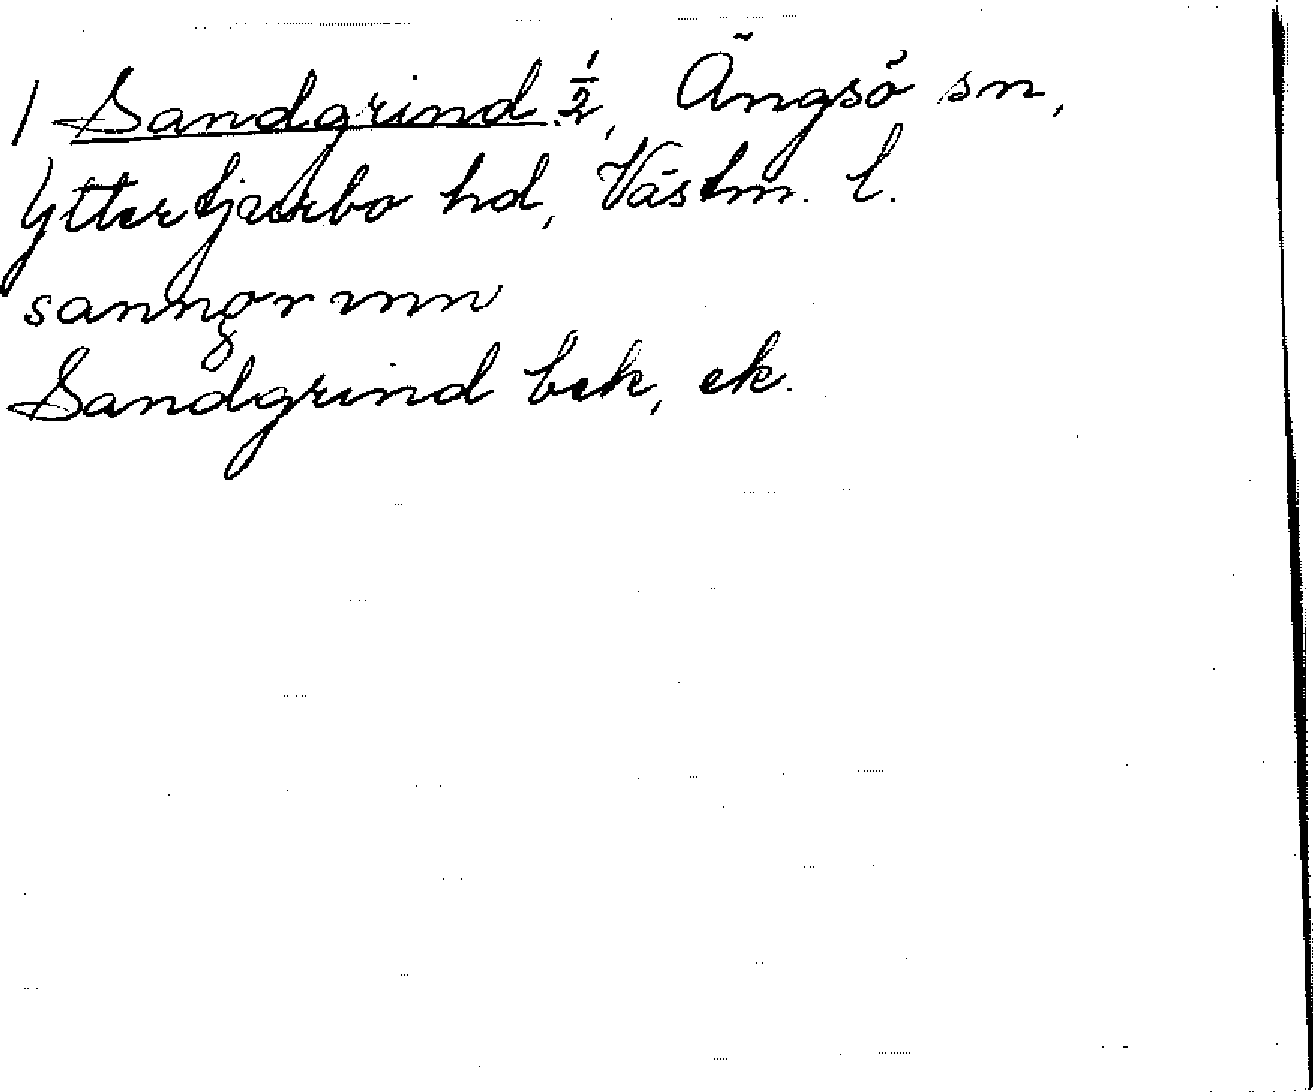 1 Sandgrind ½, Ängsö sn,
Yttertjurbo hd, Västm. l.
sanngrinn
Sandgrind bek, ek.